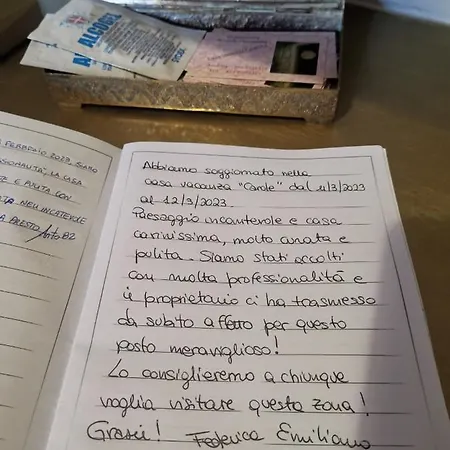 ALCOOL
FEBBRAIO 2023. SIAMO
LA CASA
E PULITA CON
A PRESTO
Abbiamo soggiornato nella
casa vacanza "Carole" dal 11/3/2023
al 12/3/2023.
Paesaggio incantevole e casa
carinissima, molto curata e
pulita. Siamo stati accolti
con molta professionalità e
il proprietario ci ha trasmesso
da subito affetto per questo
posto meraviglioso!
Lo consiglieremo a chiunque
voglia visitare questa zona!
Grazie! Federica Emiliano